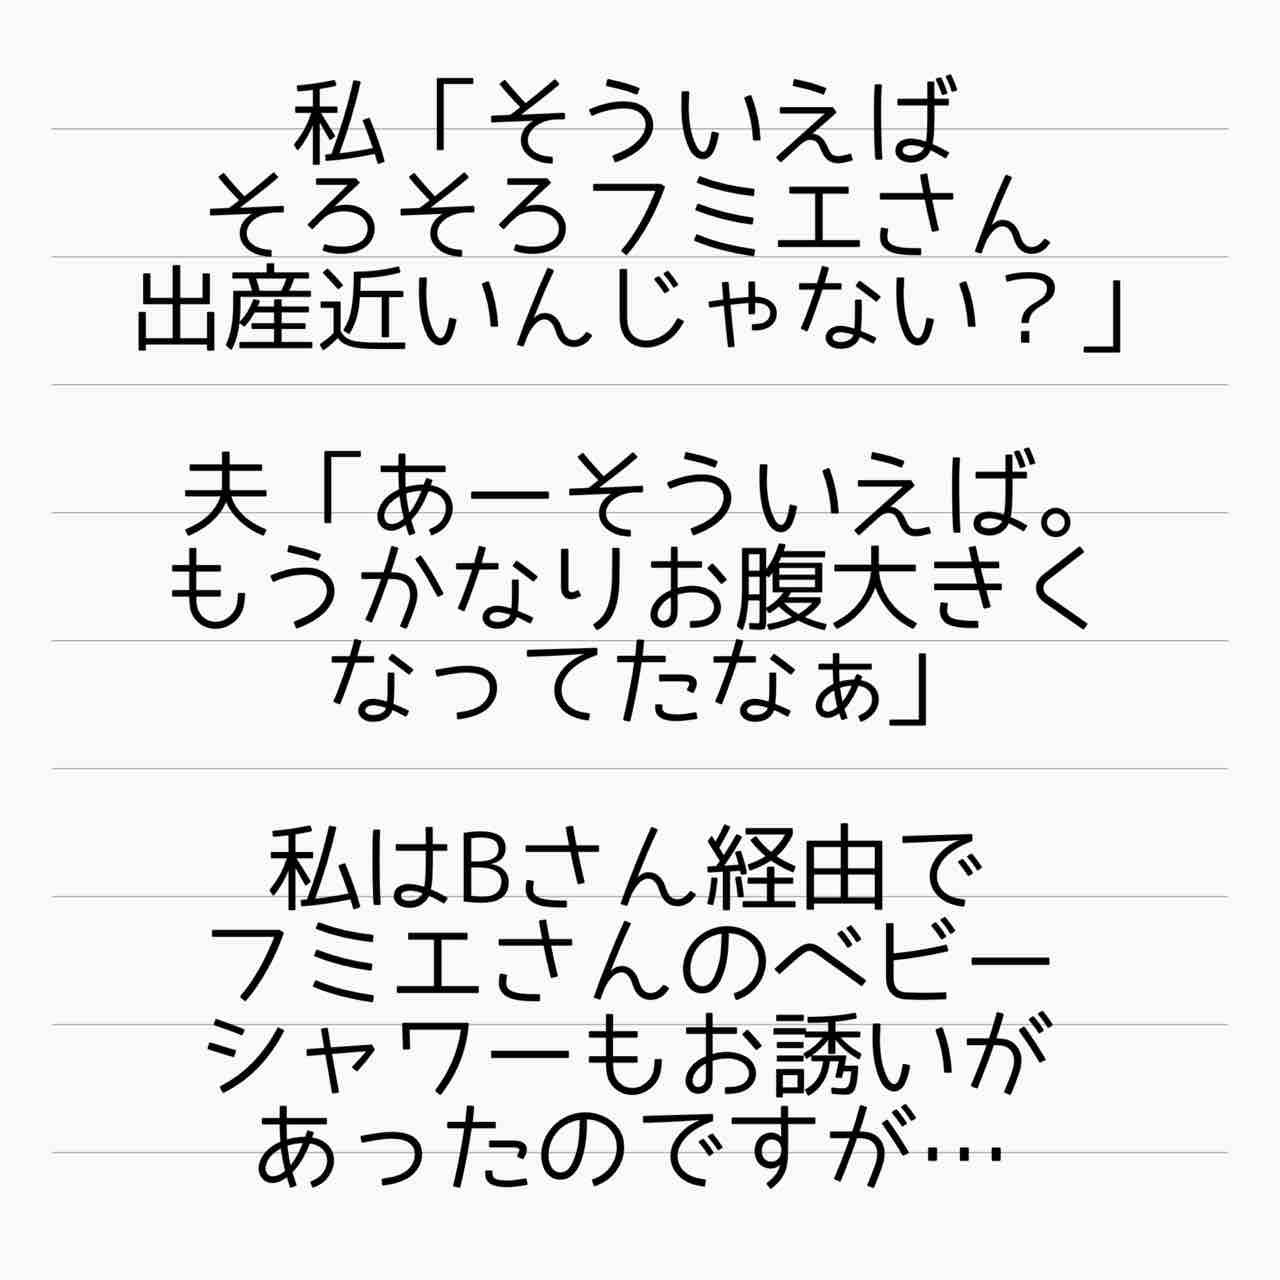 私「そういえば
そろそろフミエさん
出産近いんじゃない？」
夫「あーそういえば。
もうかなりお腹大きく
なってたなぁ」
私はBさん経由で
フミエさんのベビー
シャワーもお誘いが
あったのですが…